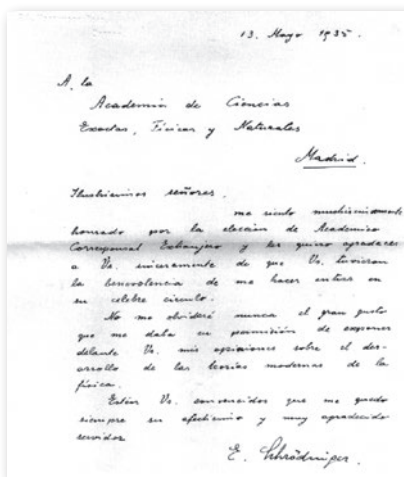 13. Mayo 1935.
A la
Academia de Ciencias
Exactas, Físicas y Naturales
Madrid.
Ilustrísimos señores,
me siento muchísimamente
honrado por la elección de Académico
Corresponsal Extranjero y les quiero agradecer
a Vs. sinceramente de que Vs. tuvieron
la benevolencia de me hacer entrar en
su célebre círculo.
No me olvideré nunca el gran gusto
que me daba su permisión de exponer
delante Vs. mis opiniones sobre el des-
arrollo de las teorías modernas de la
física.
Estén Vs. convencidos que me quedo
siempre su afectísimo y muy agradecido
servidor
E. Schrödinger.